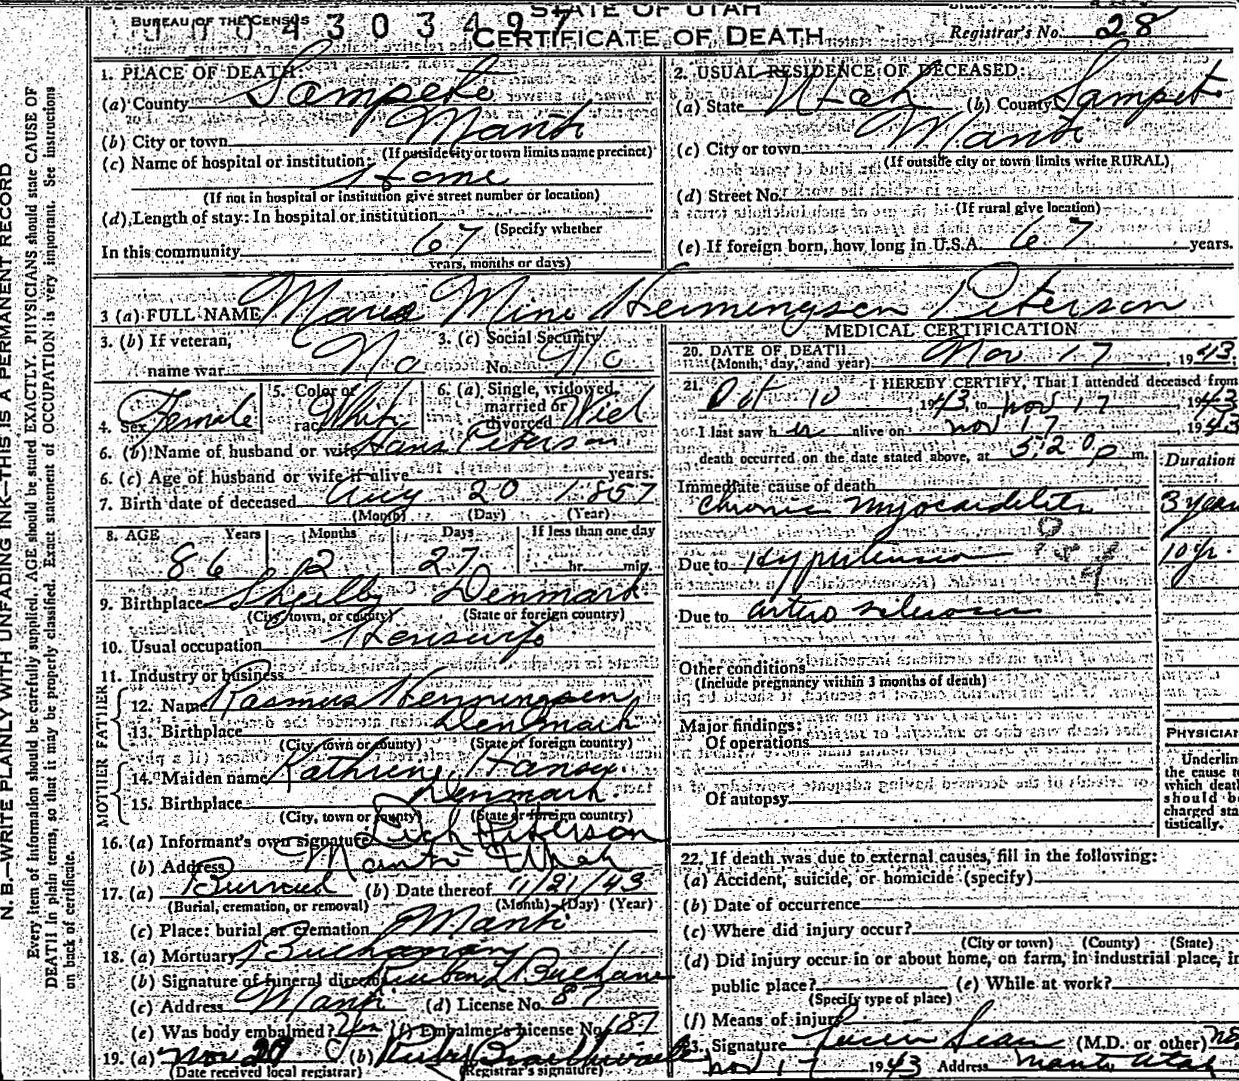 STATE OF UTAH
BUREAU OF THE CENSUS
CERTIFICATE OF DEATH
Registrar's No. 28
1. PLACE OF DEATH:
(a) County Sanpete
(b) City or town Manti
(If outside city or town limits name precinct)
(c) Name of hospital or institution:
Home
(If not in hospital or institution give street number or location)
(d) Length of stay: In hospital or institution
(Specify whether
In this community 67
years, months or days)
2. USUAL RESIDENCE OF DECEASED:
(a) State Utah (b) County Sampete
(c) City or town Manti
(If outside city or town limits write RURAL)
(d) Street No.
(If rural give location)
(e) If foreign born, how long in U.S.A. 67 years.
3 (a) FULL NAME Maria Mine Hermingsen Peterson
3. (b) If veteran, name war No
3. (c) Social Security No. No
4. Sex Female
5. Color or race White
6. (a) Single, widowed, married or divorced Wid
6. (b) Name of husband or wife Hans Peterson
6. (c) Age of husband or wife if alive years.
7. Birth date of deceased Aug 20 1857
(Month) (Day) (Year)
8. AGE Years Months Days If less than one day
86 2 27 hr. min.
9. Birthplace Denmark
(City, town, or county) (State or foreign country)
10. Usual occupation
11. Industry or business
FATHER
12. Name Rasmus Hermingsen
13. Birthplace Denmark
(City, town or county) (State or foreign country)
MOTHER
14. Maiden name Kathrene
15. Birthplace Denmark
(City, town or county) (State or foreign country)
16. (a) Informant's own signature Peterson
(b) Address Manti Utah
17. (a) Burried (b) Date thereof 11/21/43
(Burial, cremation, or removal) (Month) (Day) (Year)
(c) Place: burial or cremation Manti
18. (a) Mortuary Buchanan
(b) Signature of funeral director
(c) Address Manti (d) License No. 87
(e) Was body embalmed? Yes (f) Embalmer's License No. 187
19. (a) Nov 20 (b)
(Date received local registrar) (Registrar's signature)
MEDICAL CERTIFICATION
20. DATE OF DEATH Nov 17 1943
(Month, day, and year)
21. I HEREBY CERTIFY, That I attended deceased from
Oct 10, 1943 to Nov 17 1943
I last saw her alive on Nov 17 1943
death occurred on the date stated above, at 5:20 p m.
Duration
Immediate cause of death
Chronic myocarditis 3 years
Due to Hypertension 10 yr.
Due to arterio sclerosis
Other conditions
(Include pregnancy within 3 months of death)
Major findings:
Of operations
Of autopsy
PHYSICIAN
Underline
the cause to
which death
should be
charged sta-
tistically.
22. If death was due to external causes, fill in the following:
(a) Accident, suicide, or homicide (specify)
(b) Date of occurrence
(c) Where did injury occur?
(City or town) (County) (State)
(d) Did injury occur in or about home, on farm, in industrial place, in
public place? (e) While at work?
(Specify type of place)
(f) Means of injury
23. Signature (M.D. or other)
Nov 17 1943 Address Manti Utah
N. B.—WRITE PLAINLY WITH UNFADING INK—THIS IS A PERMANENT RECORD
Every item of information should be carefully supplied. AGE should be stated EXACTLY. PHYSICIANS should state CAUSE OF
DEATH in plain terms, so that it may be properly classified. Exact statement of OCCUPATION is very important. See instructions
on back of certificate.